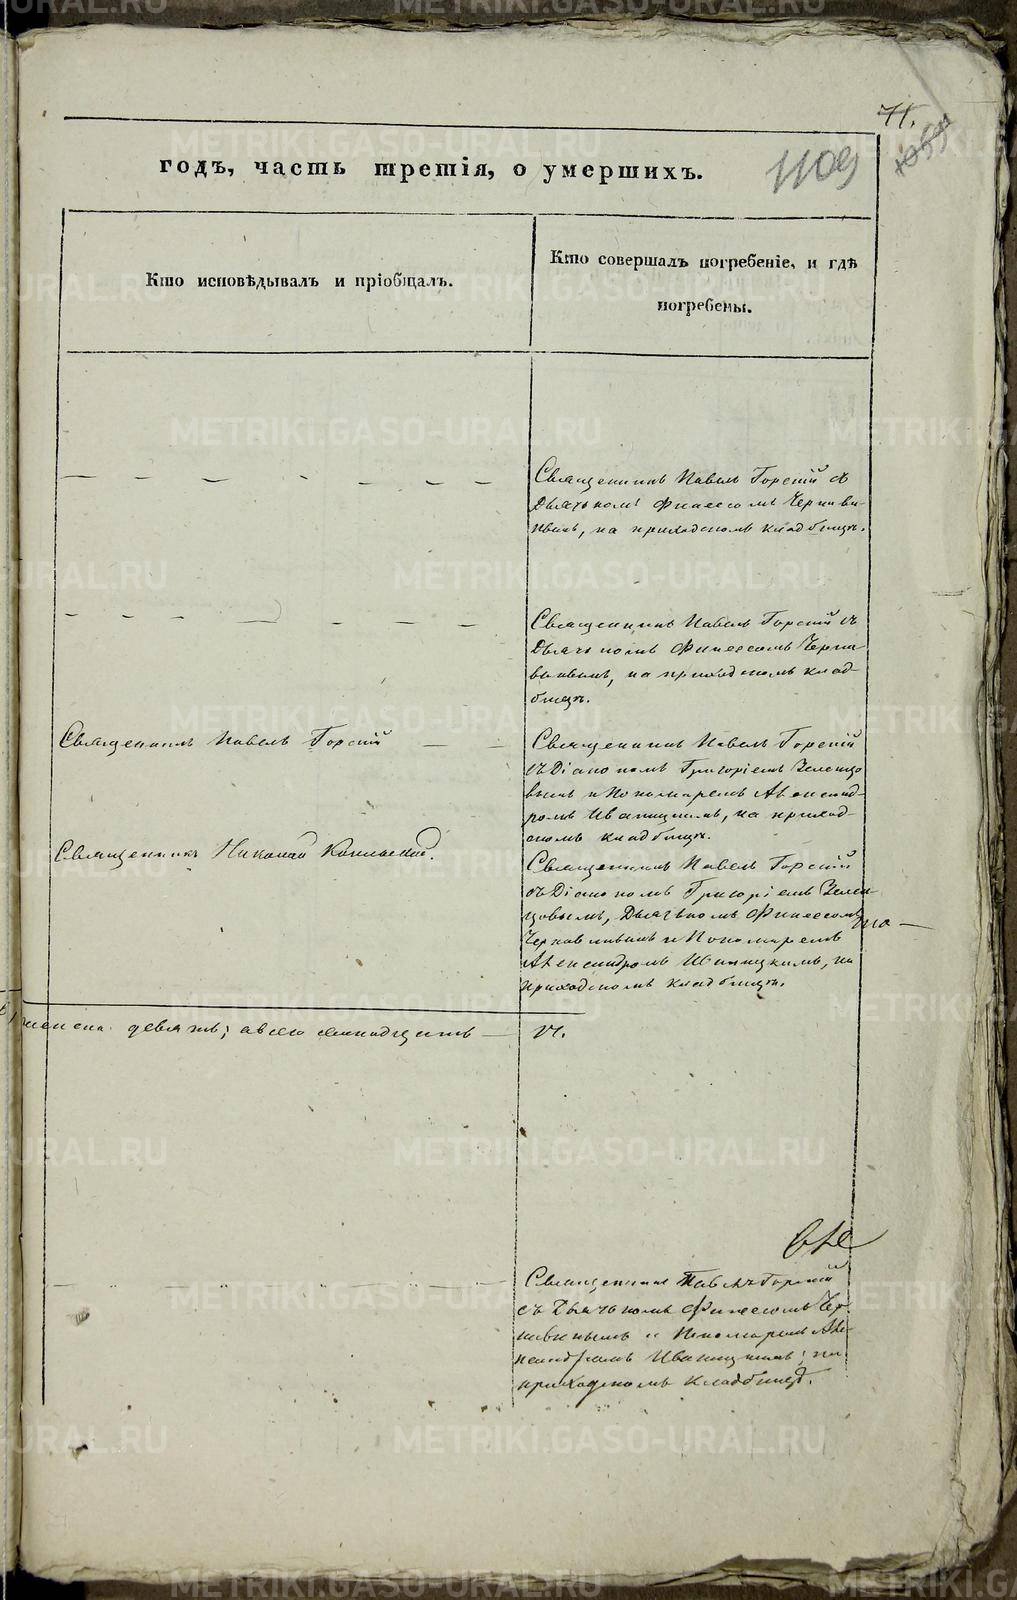 71.
годъ, часть третія, о умершихъ.
1109
Кто исповѣдывалъ и пріобщалъ.
Кто совершалъ погребеніе, и гдѣ
погребены.
Священникъ Павелъ Горскій съ
Дьячкомъ Финеесомъ Чернави-
нымъ, на приходскомъ кладбищѣ.
Священникъ Павелъ Горскій съ
Дьячкомъ Финеесомъ Черна-
винымъ, на приходскомъ клад-
бищѣ.
Священникъ Павелъ Горскій
Священникъ Павелъ Горскій
съ Діакономъ Григоріемъ Зеленцо
вымъ и Пономаремъ Александ-
ромъ Иваницкимъ, на приход-
скомъ кладбищѣ.
Священникъ Николай
Священникъ Павелъ Горскій
съ Діакономъ Григоріемъ Зелен-
цовымъ, Дьячкомъ Финеесомъ
Чернавинымъ и Пономаремъ
Александромъ Иваницкимъ, на
приходскомъ кладбищѣ.
женска девять; а всего
17.
Священникъ Павелъ Горскій
съ Дьячкомъ Финеесомъ Чер-
навинымъ и Пономаремъ Але-
ксандромъ Иваницкимъ; на
приходскомъ кладбищѣ.
METRIKI.GASO-URAL.RU